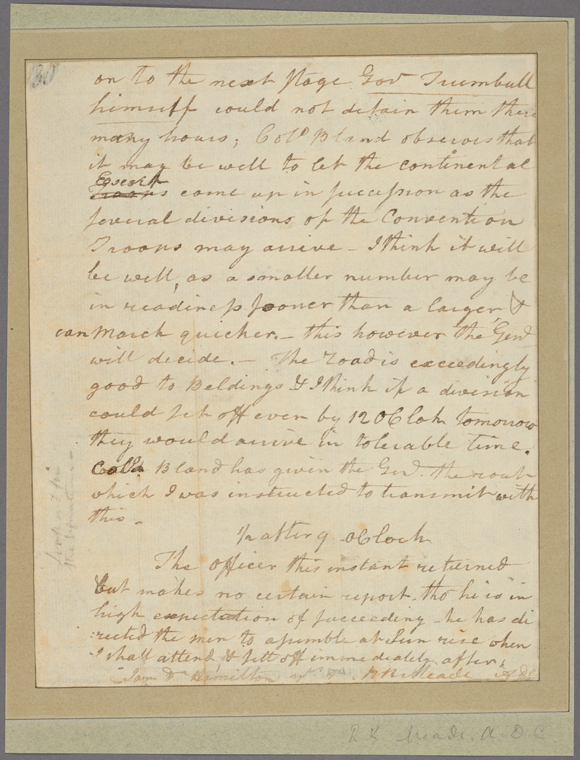 on to the next stage Gov Trumbull
himself could not detain them there
many hours; Colo Bland observes that
it may be well to let the continental
Escort
Troops come up in succession as the
several divisions of the Convention
Troops may arrive - I think it will
be well, as a smaller number may be
in readiness sooner than a larger &
can March quicker. - this however the Genl
will decide. - The road is exceedingly
good to Beldings & I think if a division
could set off even by 12 OClok tomorrow
they would arrive in tolerable time.
Colo Bland has given the Genl. the rout
which I was instructed to transmit with
this -
½ after 9 oClock
The officer this instant returned
but makes no certain report. tho he is in
high expectation of succeeding - he has di
rected the men to assemble at Sun rise when
I shall attend & sett off immediately after.
I am Dr Hamilton R K Meade
R K Meade. A. D. C